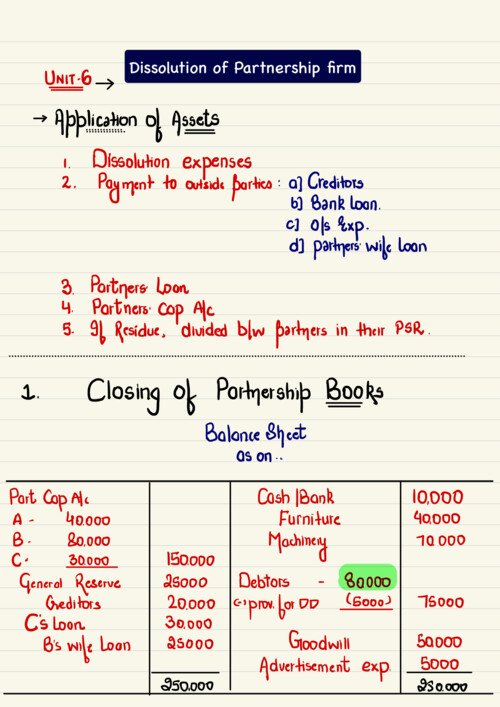 Dissolution of Partnership firm
UNIT-6 →
→ Application of Assets
1. Dissolution expenses
2. Payment to outside parties : a] Creditors
b] Bank Loan.
c] O/s Exp.
d] partners' wife loan
3. Partners Loan
4. Partners Cap A/c
5. If Residue, divided b/w partners in their PSR.
1. Closing of Partnership Books
Balance Sheet
as on..
Part Cap A/c Cash |Bank 10,000
A - 40.000 Furniture 40.000
B - 80,000 Machinery 70 000
C - 30000 150000
General Reserve 25000 Debtors - 80000
Creditors 20,000 (-) prov. for DD (5000) 75000
C's Loan 30.000
B's wife Loan 25000 Goodwill 50.000
Advertisement exp. 5000
250.000 250.000